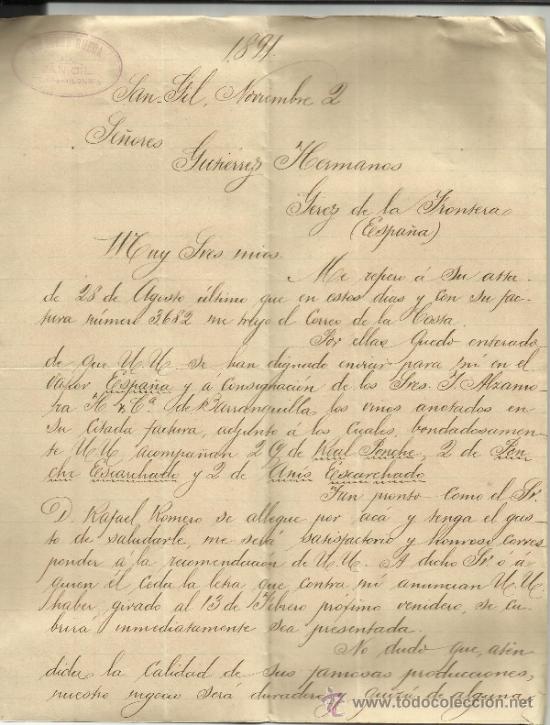 1891.
San Gil, Noviembre 2
Señores
Gutiérrez Hermanos
Gerez de la Frontera
(España)
Muy Sres mios.
Me refiero á Su atta.
de 28 de Agosto último que en estos dias y con su fac-
tura número 3682 me trajo el Correo de la Costa.
Por ellas quedo enterado
de que U.U. se han dignado enviar para mí en el
vapor España y á Consignación de los Sres. J. Alzamo-
ra H & Cª de Barranquilla, los vinos anotados en
Su Citada factura, adjunto á los Cuales, bondadosamen-
te UU acompañan 2 de Real Ponche, 2 de Pon-
che Escarchado y 2 de Anis Escarchado
Tan pronto como el Sr.
D. Rafael Romero se allegue por acá y tenga el gus-
to de saludarle, me será satisfactorio y honroso corres-
ponder á la recomendacion de U.U. A dicho Sr. ó á
quien él ceda la letra que contra mí anuncian U.U.
haber girado al 13 de Febrero próximo venidero, se cu-
brirá inmediatamente sea presentada.
No dudo que, aten-
dida la Calidad de sus famosas producciones,
nuestro negocio será duradero y quizá de alguna
todocoleccion
www.todocoleccion.net